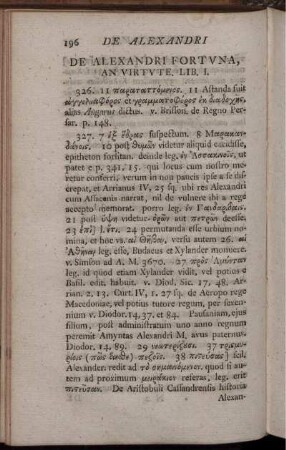 196 DE ALEXANDRI
DE ALEXANDRI FORTVNA,
AN VIRTVTE. LIB. I.
326. 11 παραταττόμενος. 11 Astanda fuit
ἀγγελιαφόρος et γραμματοφόρος ἐκ διαδοχῆς,
alias Angarus dictus. v. Brisson. de Regno Per-
sar. p. 148.
327. 7 ἐξ ἕδρας suspectum. 8 Μαρακαν-
δάνοις. 10 post θυμῶν videtur aliquid excidisse,
epitheton fortitan. deinde leg. ἐν Ἀσπακηνοῖς, ut
patet e p. 341, 15. qui locus cum nostro me-
retur conferri, utrum in nou paucis ipse se is
errepat, et Arrianus IV, 25 sq. ubi res Alexandri
cum Assacanis enarrat, nil de vulnere ibi a rege
accepto memorat. porro leg. ἐν Γανδαρίδαις.
21 post ὕψη videtur ἐρῶν aut πετρῶν deesse.
23 ἐπὶ] f. ἔτι. 24 permutanda esse urbium no-
mina, et hoc vs. αἱ Θῆβαι, versu autem 26. αἱ
Ἀθῆναι leg. esse, Budaeus et Xylander monuere.
v. Simson ad A. M. 3670. 27 πρὸς Ἀμύνταν
leg. id quod etiam Xylander vidit, vel potius e
Basil. edit. habuit. v. Diod. Sic. 17, 48. Arr-
ian. 2, 13. Curt. IV, 1. 27 sq. de Aeropo rege
Macedoniae, vel potius tutore regum, per sexen-
nium v. Diodor. 14, 37. et 84. Pausaniam, ejus
filium, post administratum uno anno regnum
peremit Amyntas Alexandri M. avus paternus.
Diodor. 14, 89. 29 νεωτερίζουσι. 37 τρισμυ-
ρίοις (πῶς δωθε) πεζοῖς. 38 πιτεύσας] scil.
Alexander. redit ad τὸ σημαινόμενον. quod si au-
tem ad proximum μειράκιον referas, leg. erit
πιτεῦσαν. De Aristobuli Cassandrensis historia
Alexan-